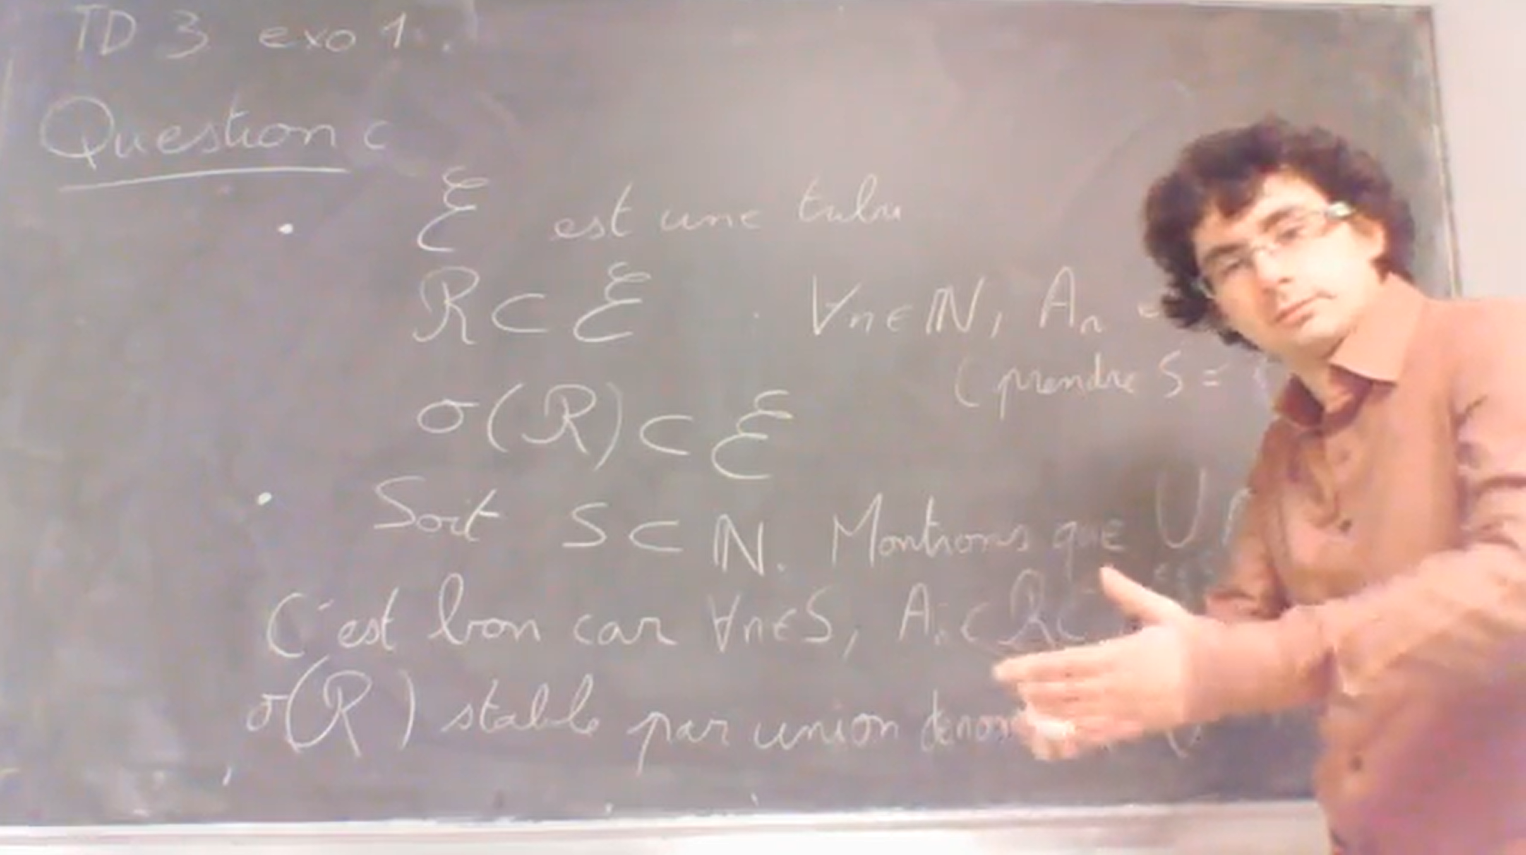 TD 3 exo 1.
Question c
• ℰ est une tribu
ℛ ⊂ ℰ . ∀n∈ℕ, Aₙ
(prendre S =
σ(ℛ) ⊂ ℰ
• Soit S ⊂ ℕ. Montrons que ∪
C'est bon car ∀n∈S, Aₙ ⊂ ℛ ⊂
σ(ℛ) stable par union